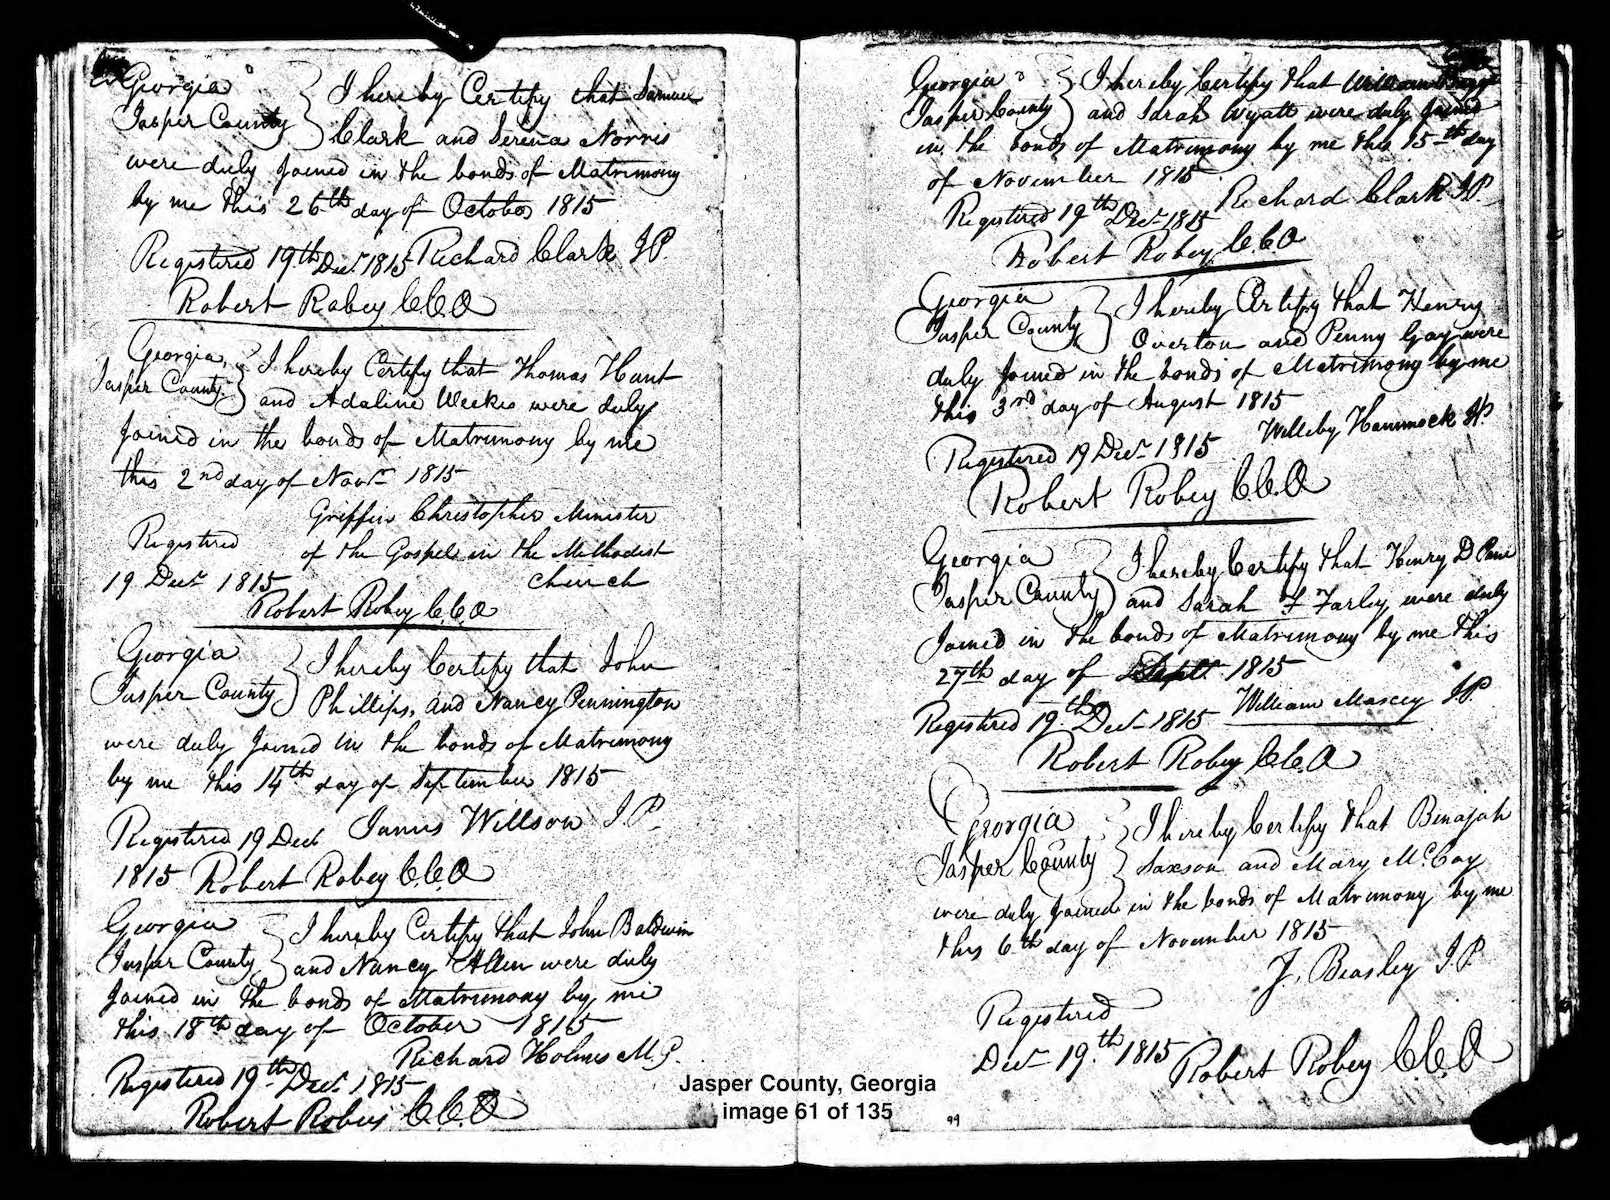 Georgia
Jasper County
I hereby Certify that Samuel
Clark and Serena Norris
were duly joined in the bonds of Matrimony
by me this 26th day of October 1815
Registered 19th Decr 1815 Richard Clark J.P.
Robert Robey C.C.O
Georgia
Jasper County
I hereby Certify that Thomas Hunt
and Adaline Weekes were duly
Joined in the bonds of Matrimony by me
this 2nd day of Novr 1815
Griffin Christopher Minister
of the Gospel in the Methodist
Church
Registered
19 Decr 1815
Robert Robey C.C.O
Georgia
Jasper County
I hereby Certify that John
Phillips, and Nancy Pennington
were duly Joined in the bonds of Matrimony
by me this 14th day of September 1815
Registered 19 Decr James Willson J.P.
1815 Robert Robey C.C.O
Georgia
Jasper County
I hereby Certify that John Baldwin
and Nancy Allen were duly
Joined in the bonds of Matrimony by me
this 18th day of October 1815
Richard Holmes M.G.
Registered 19th Decr 1815
Robert Robey C.C.O
Georgia
Jasper County
I hereby Certify that William
and Sarah Wyatt were duly Joined
in the bonds of Matrimony by me this 15th day
of November 1815
Richard Clark J.P.
Registered 19th Decr 1815
Robert Robey C.C.O
Georgia
Jasper County
I hereby Certify that Henry
Overton and Penny Gay were
duly Joined in the bonds of Matrimony by me
this 3rd day of August 1815
Willeby Hammock J.P.
Registered 19 Decr 1815
Robert Robey C.C.O
Georgia
Jasper County
I hereby Certify that Henry D
and Sarah F Farley, were duly
Joined in the bonds of Matrimony by me this
27th day of Sept. 1815
William Maxcey J.P.
Registered 19th Decr 1815
Robert Robey C.C.O
Georgia
Jasper County
I hereby Certify that Benajah
Saxson and Mary McCoy
were duly Joined in the bonds of Matrimony by me
this 6th day of November 1815
J. Beasley J.P.
Registered
Decr 19th 1815 Robert Robey C.C.O
Jasper County, Georgia
image 61 of 135